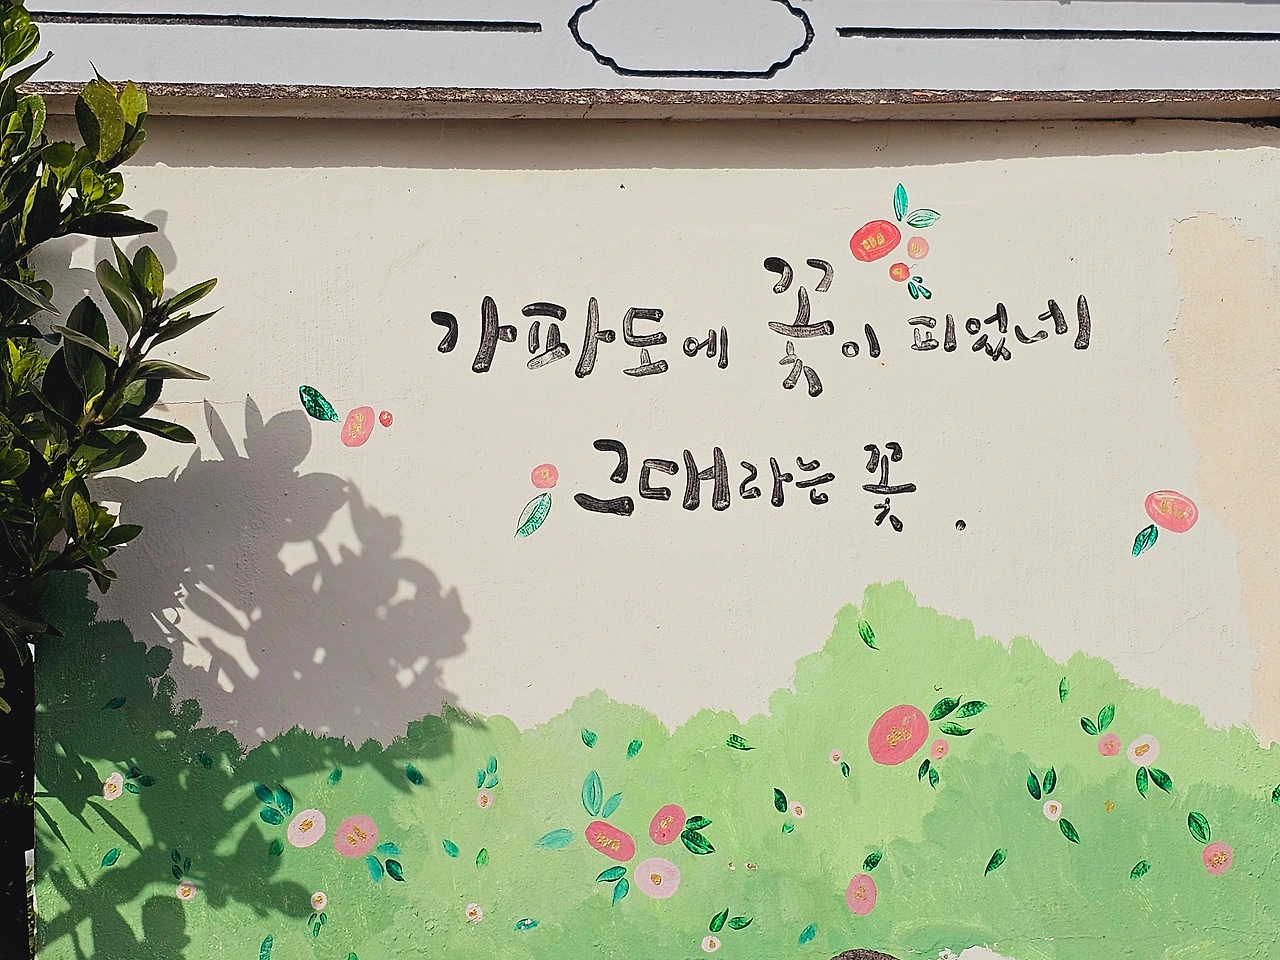 가파도에 꽃이 피었네
그대라는 꽃.